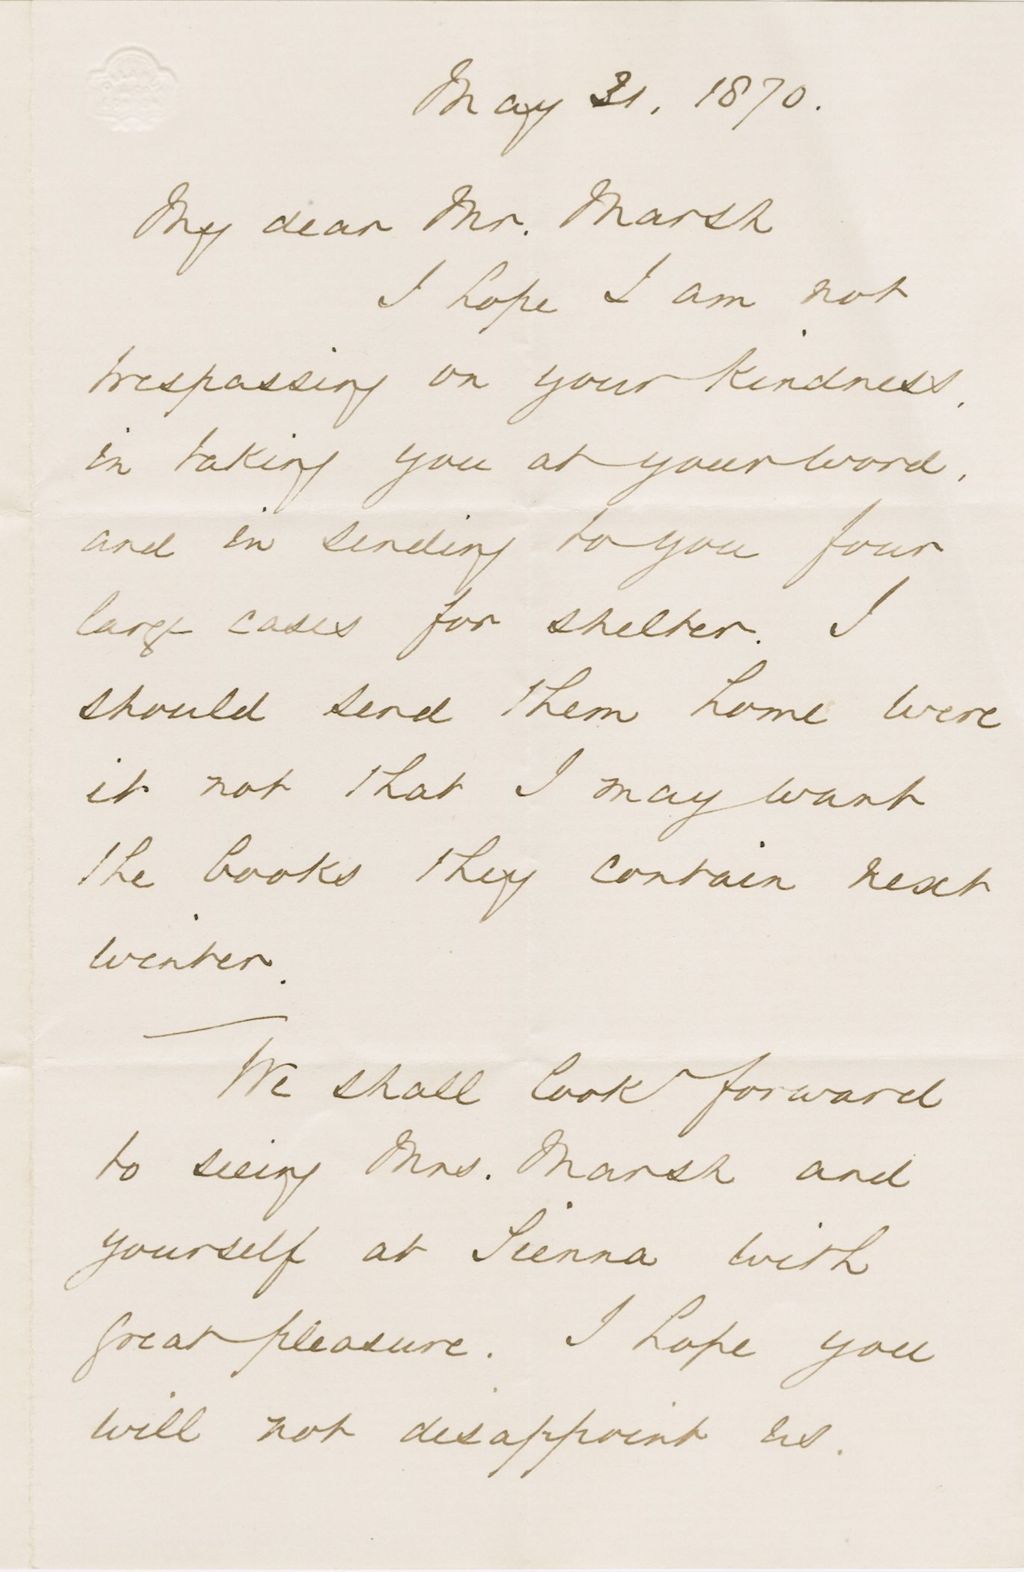 May 31, 1870.
My dear Mr. Marsh
I hope I am not
trespassing on your kindness,
in taking you at your word,
and in sending to you four
large cases for shelter. I
should send them home were
it not that I may want
the books they contain next
winter.
We shall look forward
to seeing Mrs. Marsh and
yourself at Sienna with
great pleasure. I hope you
will not disappoint us.